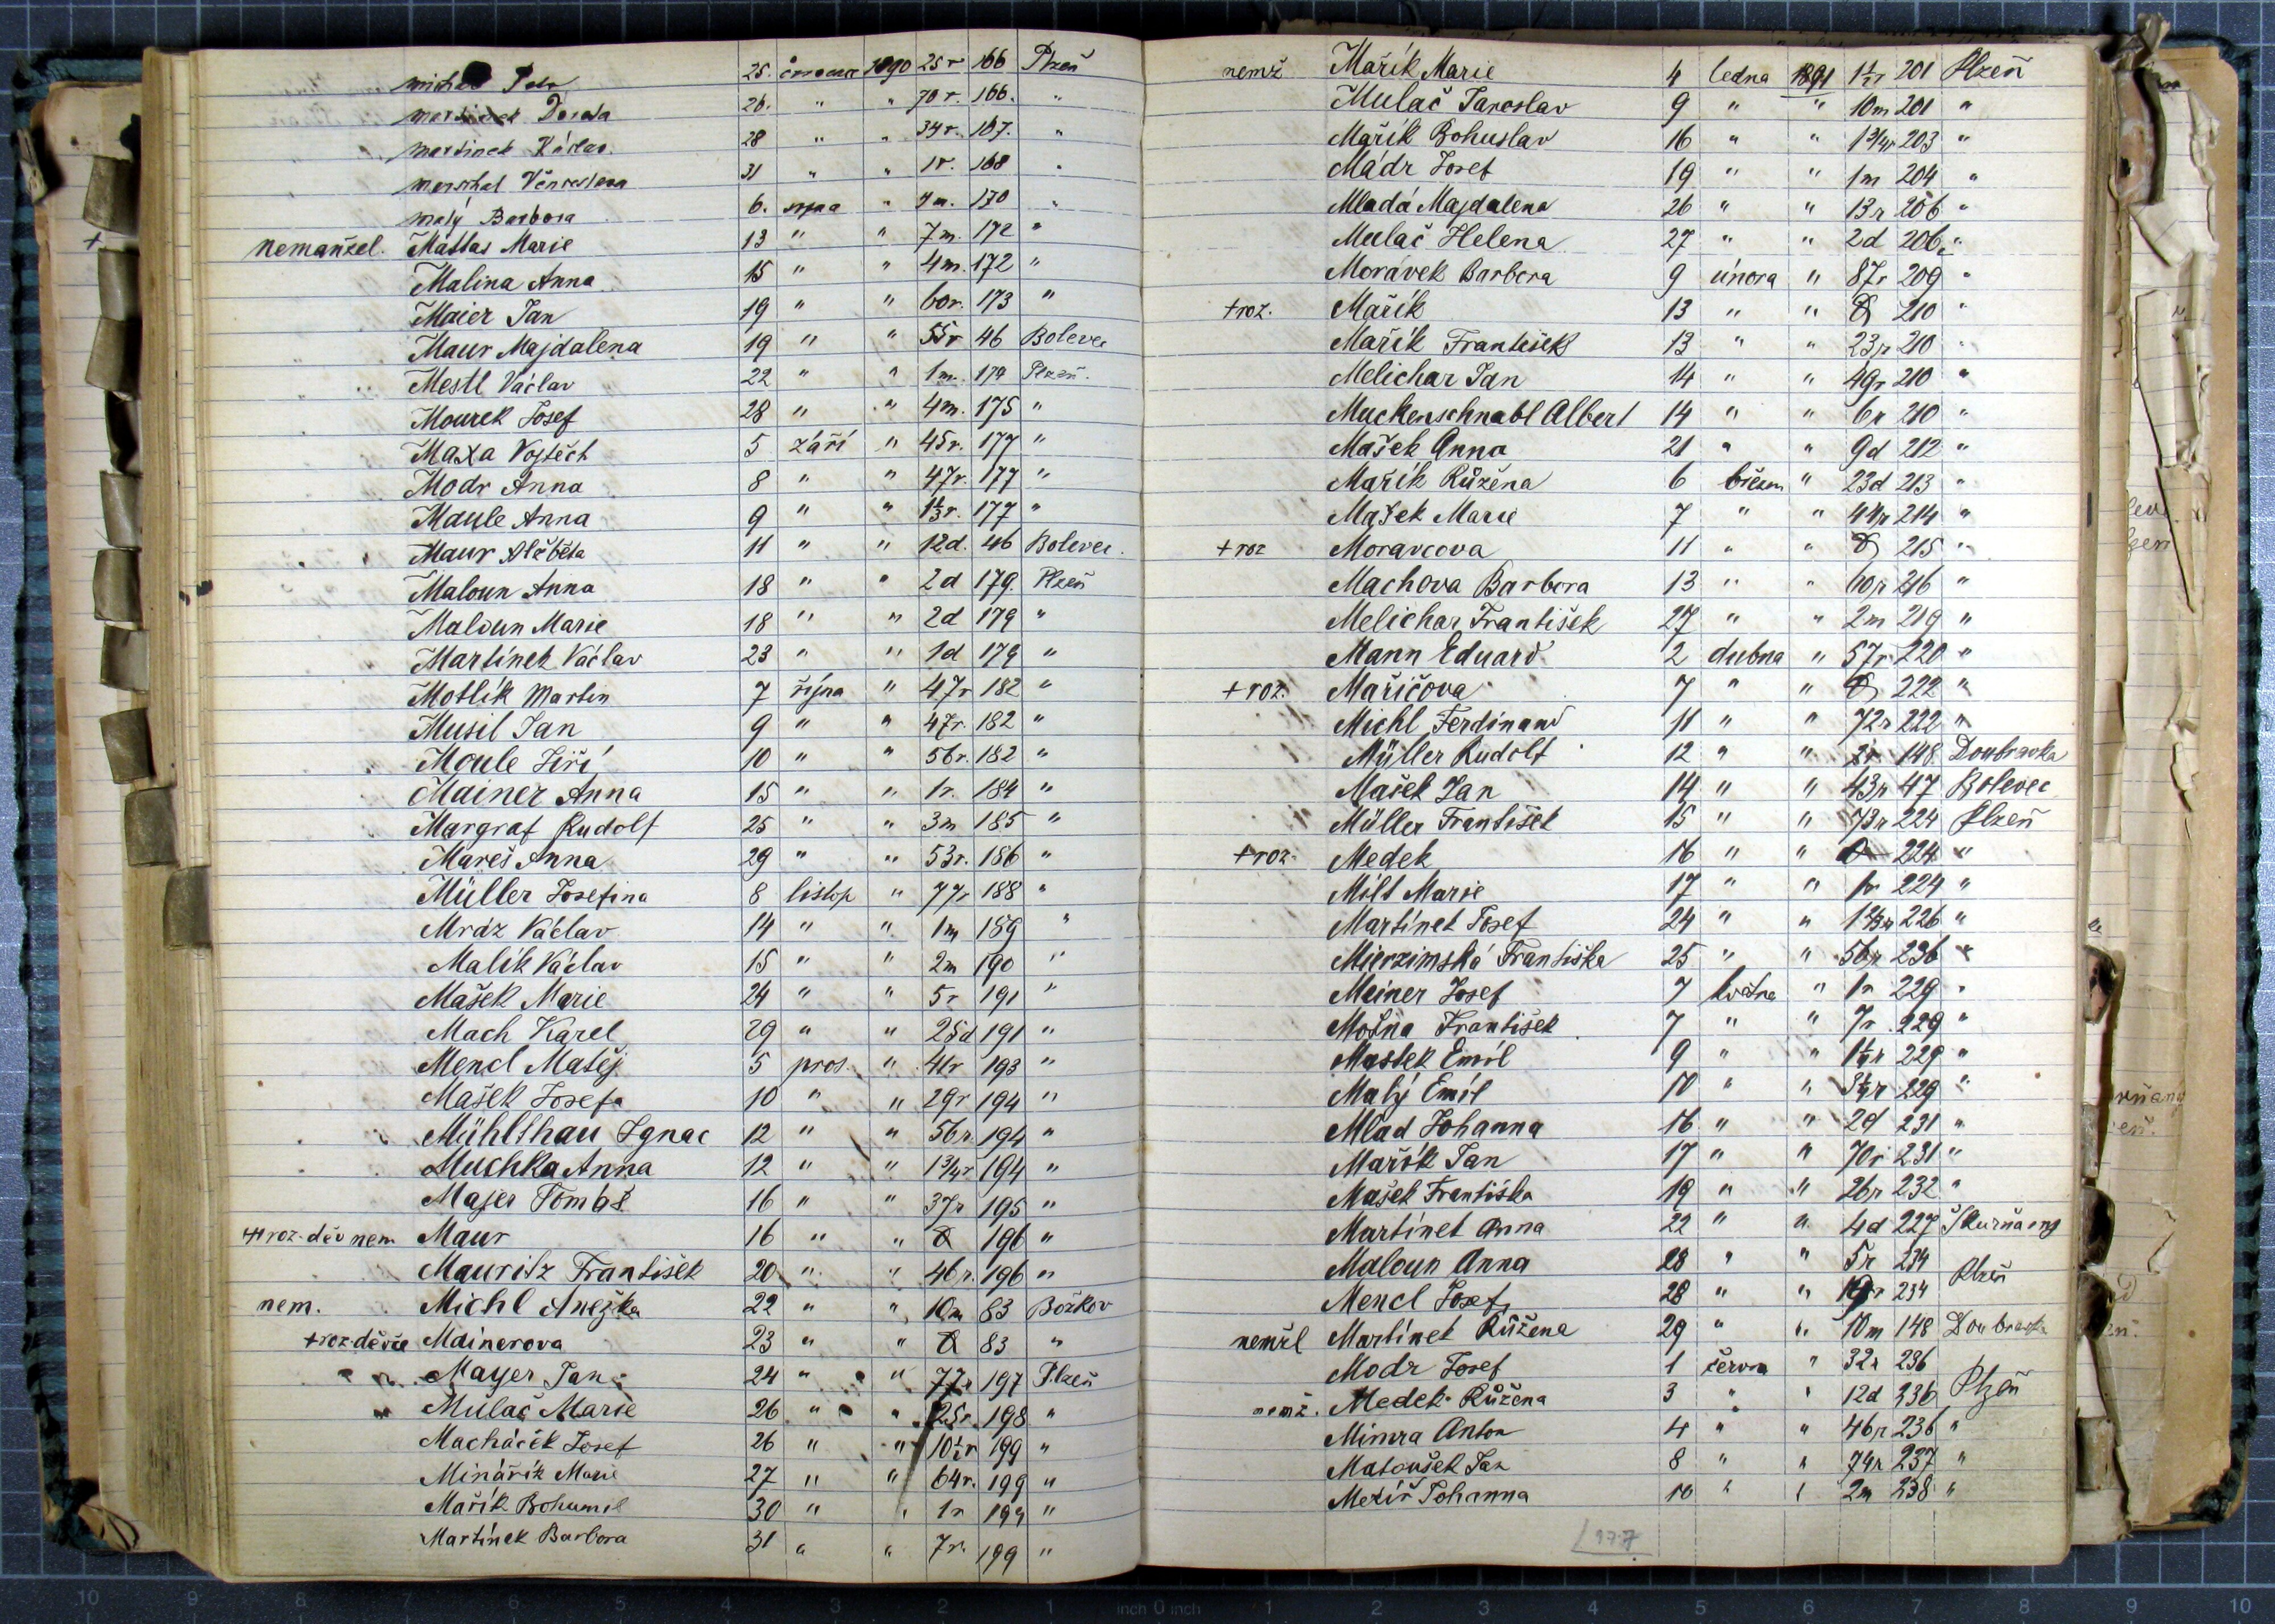 25. 1890 25r 166 Plzeň
26. " " 70r. 166. "
martinek Václav. 28 " " 34r. 167. "
31 " " 1r. 168 "
malý Barbora 6. srpna " 7m. 170 "
nemanžel. Mattas Marie 13 " " 7m. 172 "
Malina Anna 15 " " 4m. 172 "
Maier Jan 19 " " 60r. 173 "
Maur Majdalena 19 " " 55r 46 Bolevec
Mestl Václav 22 " " 1m. 174 Plzeň.
Mourek Josef 28 " " 4m. 175 "
Maxa Vojtěch 5 září " 45r. 177 "
Modr Anna 8 " " 47r. 177 "
Maule Anna 9 " " 1⅓r. 177 "
Maur Alžběta 11 " " 12d. 46 Bolevec.
Maloun Anna 18 " " 2d 179. Plzeň
Maloun Marie 18 " " 2d 179 "
Martínek Václav 23 " " 1d 179 "
Motlík Martin 7 října " 47r 182 "
Musil Jan 9 " " 47r. 182 "
Moule Jiří 10 " " 56r. 182 "
Mainer Anna 15 " " 1r. 184 "
Margraf Rudolf 25 " " 3m 185 "
Mareš Anna 29 " " 53r. 186 "
Müller Josefina 8 listop " 77r 188 "
Mráz Václav 14 " " 1m 189 "
Malík Václav 15 " " 2m 190 "
Mašek Marie 24 " " 5r 191 "
Mach Karel 29 " " 25d 191 "
Mencl Matěj 5 pros. " 41r 193 "
Mašek Josefa 10 " " 29r 194 "
Mühlthau Ignac 12 " " 56r. 194 "
Muchka Anna 12 " " 1¾r 194 "
Majer Tomáš 16 " " 37r 195 "
roz. děv nem Maur 16 " " 196 "
Mauritz František 20 " " 46r. 196 "
nem. Michl Anežka 22 " " 10m 83 Božkov
+roz. děvče Mainerova 23 " " 83 "
Mayer Jan 24 " " 77r 197 Plzeň
Mulač Marie 26 " " 25r. 198 "
Macháček Josef 26 " " 10½r 199 "
Minářík Marie 27 " " 64r. 199 "
Mařík Bohumil 30 " " 1r 199 "
Martínek Barbora 31 " " 7r. 199 "
nemž Mařík Marie 4 ledna 1891 1½r 201 Plzeň
Mulač Jaroslav 9 " " 10m 201 "
Mařík Bohuslav 16 " " 1¾r 203 "
Mádr Josef 19 " " 1m 204 "
Mladá Majdalena 26 " " 13r 206 "
Mulač Helena 27 " " 2d 206 "
Morávek Barbora 9 února " 87r 209 "
+roz. Mařík 13 " " 210 "
Mařík František 13 " " 23r 210 "
Melichar Jan 14 " " 49r 210 "
Muckenschnabl Albert 14 " " 6r 210 "
Mašek Anna 21 " " 9d 212 "
Mařík Růžena 6 březen " 23d 213 "
Mašek Marie 7 " " 44r 214 "
+roz Moravcova 11 " " 215 "
Machova Barbora 13 " " 60r 216 "
Melichar František 27 " " 2m 219 "
Mann Eduard 2 dubna " 57r 220 "
+roz. Maříčova 7 " " 222 "
Michl Ferdinand 11 " " 72r 222 "
Müller Rudolf 12 " " 148 Doubravka
Mašek Jan 14 " " 43r 47 Bolevec
Müller František 15 " " 73r 224 Plzeň
+roz. Medek 16 " " 224 "
Milt Marie 17 " " 1r 224 "
Martínek Josef 24 " " 226 "
Mierzimská Františka 25 " " 56r 236 "
Meiner Josef 7 května " 1r 229 "
Motna František 7 " " 7r 229 "
Mastek Emil 9 " " 229 "
Malý Emil 10 " " 229 "
Mlad Johanna 16 " " 2d 231 "
Mařík Jan 17 " " 70r 231 "
Mašek Františka 19 " " 26r 232 "
Martínek Anna 22 " " 4d 227 Skurňany
Maloun Anna 28 " " 5r 234 Plzeň
Mencl Josef 28 " " 234
nemžl Martínek Růžena 29 " " 10m 148 Doubravka
Modr Josef 1 června " 32r 236 Plzeň
nemž. Medek Růžena 3 " " 12d 236
Mimra Anton 4 " " 46r 236 "
Matoušek Jan 8 " " 74r 237 "
Mezíř Johanna 10 " " 2m 238 "
177